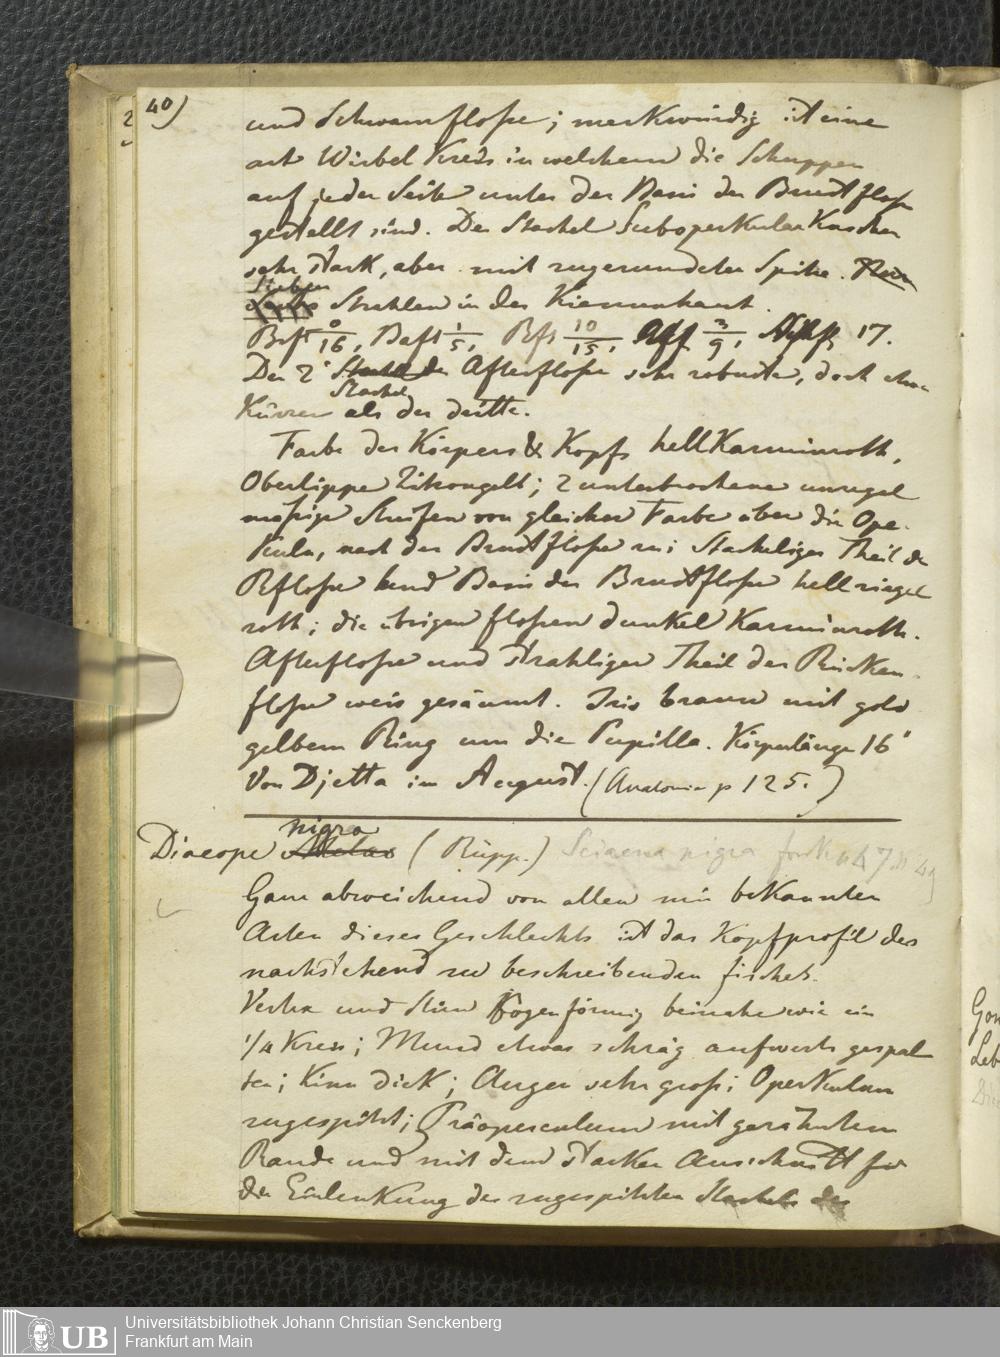 40)
und Schwanzflosse; merkwürdig ist eine
art Wirbel Kreis in welchem die Schuppen
auf jeder Seite unter der Basis der Brustflosse
gestellt sind. Der Stachel Suboperkular Knochen
sehr stark, aber mit zugerundeter Spitze.
Sieben
Strahlen in der Kiemenhaut.
Brfl 0/16, Bafl 1/5, Rfl 10/15, Affl 3/9, 17.
Der 2' Strahl der Afterflosse sehr robuste, doch etwas
Stachel
Kürzer als der dritte.
Farbe des Körpers & Kopfs hell Karminroth,
Oberlippe Zitrongelb; 2 unterbrochene unregel
mäsige Streifen von gleicher Farbe über die Oper-
kula, nach der Brustflosse zu; Stacheliger Theil der
Rflosse und Basis der Brustflosse hell ziegel
roth; die übrigen flossen dunkel Karminroth.
Afterflosse und strahliger Theil der Rücken-
flosse weis gesäumt. Iris braun mit gold
gelbem Ring um die Pupille. Körperlänge 16"
Von Djetta im August. (Anatomie p 125.)
nigra
Diacope Melas (Rüpp.) Sciaena nigra forsk n 47
Ganz abweichend von allen mir bekannten
Arten dieses Geschlechts ist das Kopfprofil des
nachstehend zu beschreibenden fisches.
Vertex und Stirn Bogenförmig beinahe wie ein
1/4 Kreis; Mund etwas schräg aufwerts gespal
ten; Kinn dick; Augen sehr gross; Operkulum
zugespitzt; Präoperculum mit gezähntem
Rande und mit dem starken Ausschnitt für
die Einlenkung des zugespitzten Stachels des
Gon
Leb
UB
Universitätsbibliothek Johann Christian Senckenberg
Frankfurt am Main